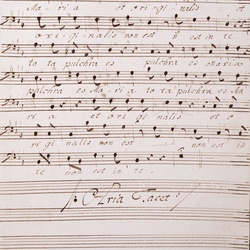 Ma - ri a et o ri gi nalis et
o - ri - gi - nalis non est in est in te
to ta pulchra es pulchra es o Maria
pulchra es Ma - ri a to ta pulchra es Ma
ri a et o ri gi nalis et o
ri gi nalis non est in
te non est in te.
Aria Tacet